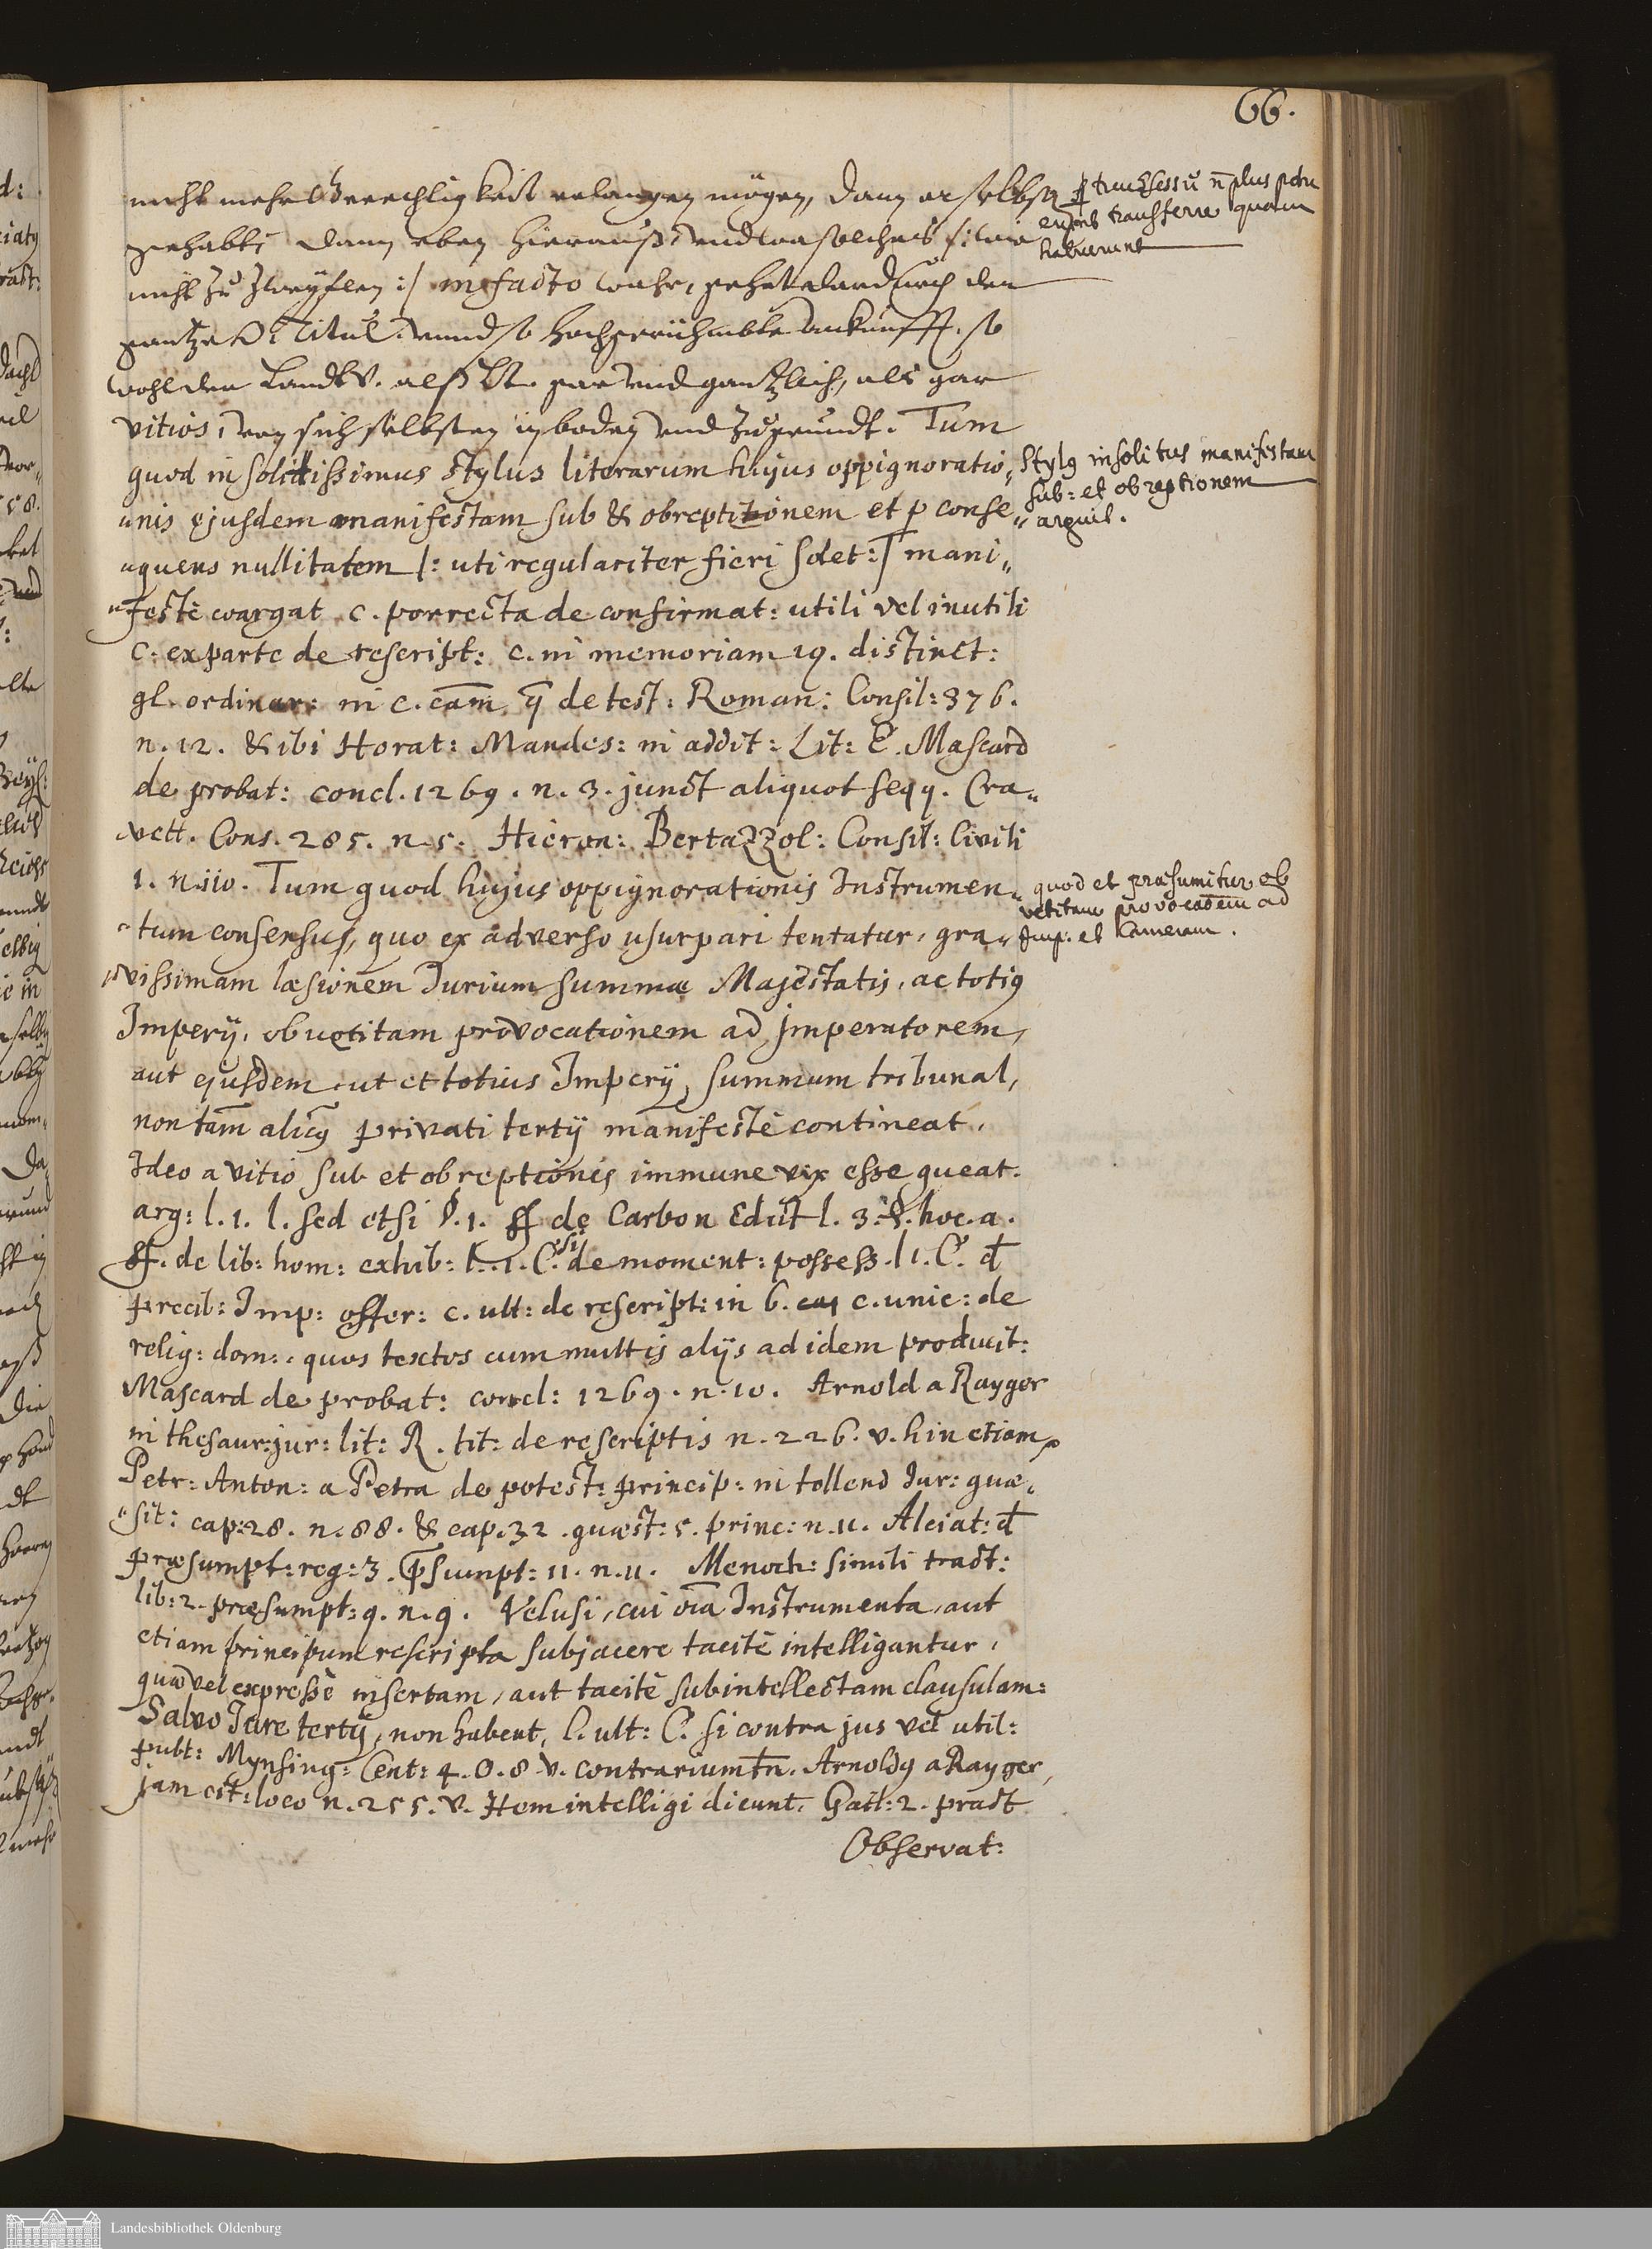 66.
nicht mehr Gerechtigkeit erlangen mögen, dann er selbst
gehabt; dann eben hierauß, vnd wa solches :/: wie
nicht zu zweyflen :/ in facto wahr, gehet dardurch der
gantze Titul. vnnd so hochgerühmbte Ankunfft, so
wohl der Landtv. alß gar vnd gantzlich, als gar
vitios, von sich selbsten in boden vnd zu grundt. Tum
quod insolitissimus stylus literarum hujus oppignoratio„
„nis ejusdem manifestam sub & obreptitionem et p conse„
„quens nullitatem /: uti regulariter fieri solet :/ mani„
„festè coargat c. porrecta de confirmat: utili vel inutili
c. ex parte de rescript: c. in memoriam 19. distinct:
gl. ordinar: in c. eam q de test: Roman: Consil: 376.
n. 12. & ibi Horat: Mandos: in addit: Lit: C. Mascard
de probat: concl. 1269. n. 3. junct aliquot seqq. Cra„
vett. Cons. 285. n. 5. Hieron: Bertazzol: Consil: Civili
1. n. 110. Tum quod hujus oppignorationis Instrumen„
„tum consensus, quo ex adverso usurpari tentatur, gra„
„vissimam læsionem Jurium summæ Majestatis, ac totius
Imperij, ob vetitam provocationem ad Imperatorem,
aut ejusdem ut et totius Imperij, summum tribunal,
non tam̄ alicuj privati tertij manifestè contineat,
Ideo a vitio sub et obreptionis immune vix esse queat.
arg: l. 1. l. sed etsi §. 1. ff de Carbon Edict l. 3. §. hoc. a.
ff. de lib: hom: exhib: l. 1. C. si de moment: possess. l 1. C. đ
precib: Imp: offer: c. ult: de rescript: in 6. c. unic: de
relig: dom: quos textos cum multis alijs ad idem producit:
Mascard de probat: concl: 1269. n. 10. Arnold a Rayger
in thesaur: jur: lit: R. tit: de rescriptis n. 226. v. hin etiam
Petr: Anton: a Petra de potest: princip: in tollend Jur: quæ„
„sit: cap: 28. n. 88. & cap. 32. quæst: 5. princ: n. 11. Alciat: đ
præsumpt: reg: 3. p̄sumpt: 11. n. 11. Menoch: simili tract:
lib: 2. præsumpt: 9. n. 9. Velusi, cui oīa Instrumenta, aut
etiam principum rescripta subjacere tacitè intelligantur,
quæ vel expressè insertam, aut tacitè subintellectam clausulam:
Salvo Jure tertij, non habent, l. ult: C. si contra jus vel util:
publ: Mynsing: Cent: 4. O. 8. v. contrarium tn̄. Arnoldus a Rayger,
jam cit: loco n. 255. v. Item intelligi dicunt. Gail: 2. pract
Observat:
Truchsess u n̄ plus potu
erint transferre quam
habuerunt
Stylus insolitus manifestam
sub: et obreptionem
arguit.
quod et præsumitur ob
vetitam provocāōem ad
Imp: et Cameram.
Landesbibliothek Oldenburg